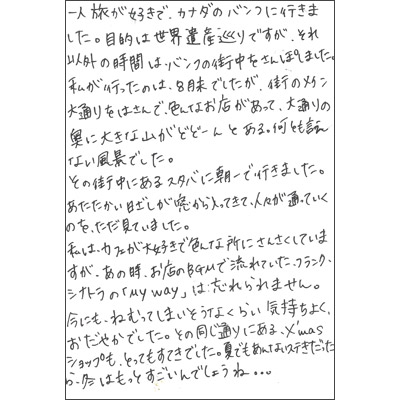 一人旅が好きで、カナダのバンフに行きま
した。目的は世界遺産巡りですが、それ
以外の時間は、バンフの街中をさんぽしました。
私が行ったのは、8月末でしたが、街のメイン
大通りをはさんで、色んなお店があって、大通りの
奥に大きな山がどどーんとある。何とも言え
ない風景でした。
その街中にあるスタバに朝一で行きました。
あたたかい日ざしが窓から入ってきて、人々が通っていく
のを、ただ見ていました。
私は、カフェが大好きで色んな所にさんさくしていま
すが、あの時、お店のBGMで流れていた、フランク・
シナトラの「My way」は忘れられません。
今にも、ねむってしまいそうなくらい気持ちよく、
おだやかでした。その同じ通りにある、X'mas
ショップも、とってもすてきでした。夏でもあんなステキだった
ら、冬はもっとすごいんでしょうね...